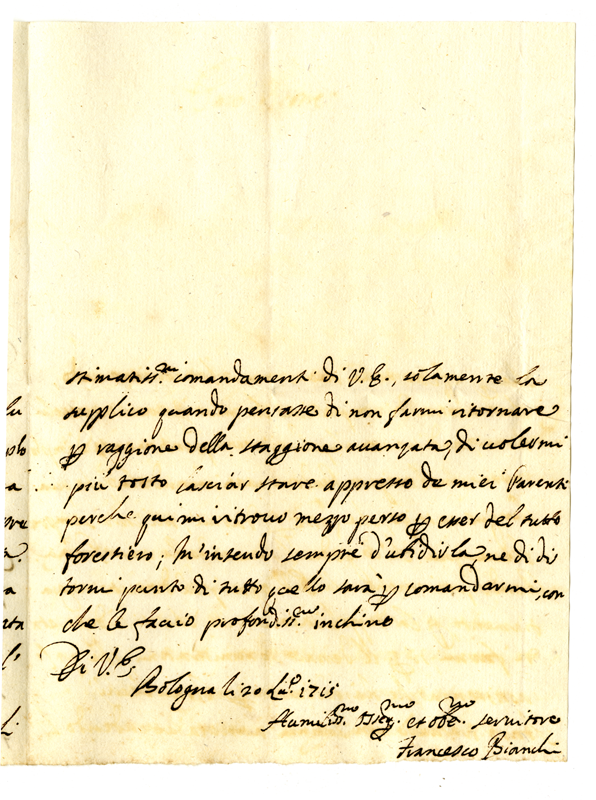 stimatiss.mi comandamenti di V. E., solamente la
supplico quando pensasse di non farmi ritornare
p raggione della staggione avanzata, di volermi
più tosto lasciar stare appresso de miei Parenti
perche qui mi ritrovo mezzo perso p esser del tutto
forestiero; M'intendo sempre d'ubidirla, ne di di
tormi punto di tutto q lo sarà p comandarmi, con
che le faccio profondiss.mo inchino
Di V. E.
Bologna li 20 1715
Humiliss.mo et obb.mo servitore
Francesco Bianchi